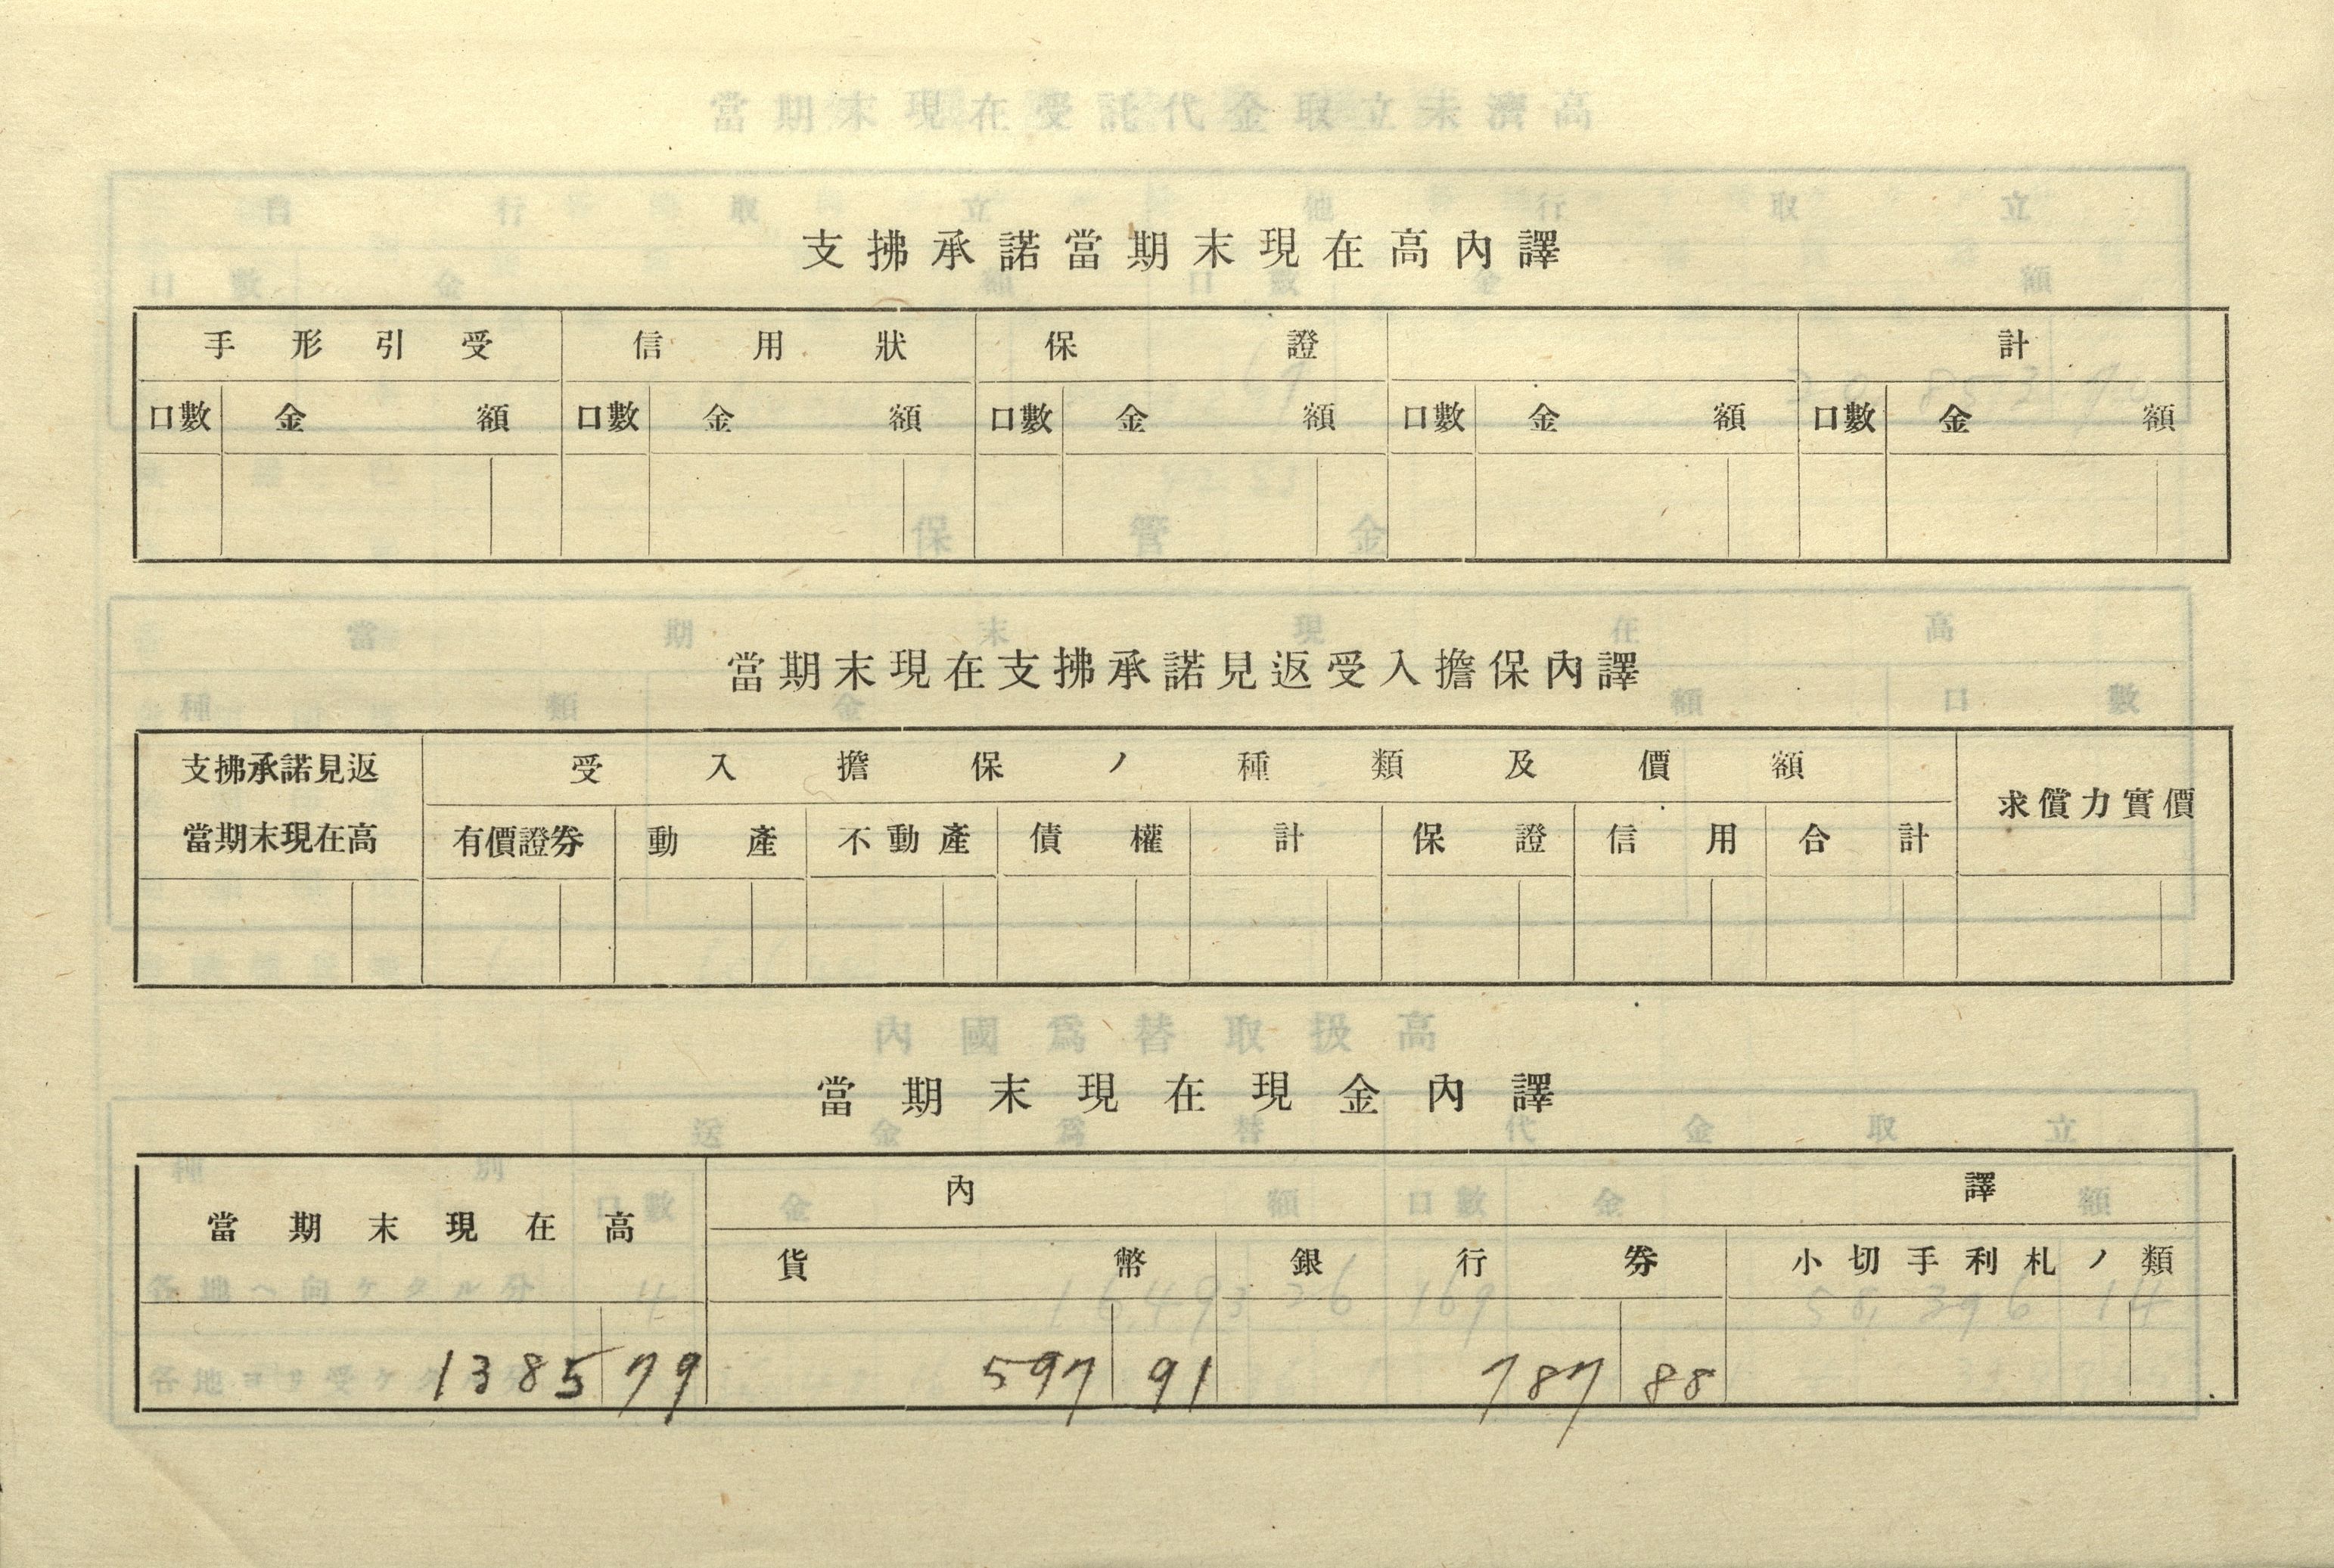 支拂承諾當期末現在高內譯
手形引受 信用狀 保證 計
口數 金額 口數 金額 口數 金額 口數 金額 口數 金額
當期末現在支拂承諾見返受入擔保內譯
支拂承諾見返 受入擔保ノ種類及價額 求償力實價
當期末現在高 有價證券 動產 不動產 債權 計 保證 信用 合計
當期末現在現金內譯
當期末現在高 內譯
貨幣 銀行券 小切手利札ノ類
1385 79 597 91 787 88